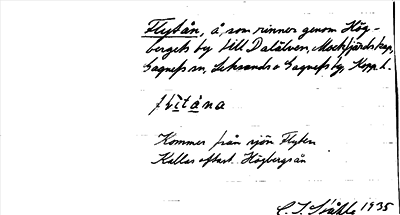 Flytån, å, som rinner genom Hög-
bergets by till Dalälven, Mockfjärds kap,
Gagnefs sn, Leksands o Gagnefs tg, Kopp. l.
flitåna
Kommer från sjön Flyten
Kallas oftast Högbergsån
C. I. Ståhle 1935